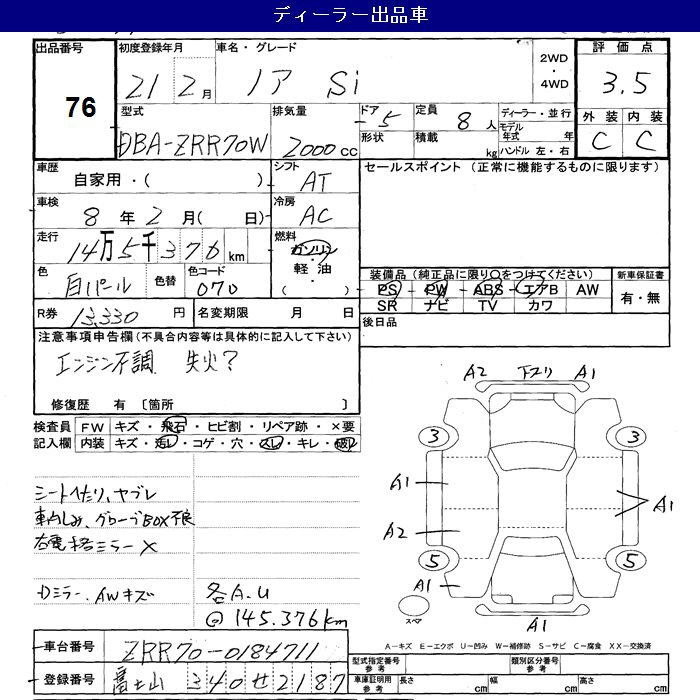 ディーラー出品車
出品番号 76
初度登録年月 21 2月
車名・グレード ノア Si
2WD・4WD
評価点 3.5
外装 C 内装 C
型式 DBA-ZRR70W
排気量 2000cc
ドア 5 形状
定員 8人 積載 kg
ディーラー・並行
モデル年式 年
ハンドル 左・右
車歴 自家用・( )
シフト AT
セールスポイント (正常に機能するものに限ります)
車検 8年 2月( 日)
冷房 AC
走行 14万5千376km
燃料 ガソリン・軽油・( )
色 白パール 色替 色コード 070
装備品 (純正品に限り○をつけてください)
PS PW ABS エアB AW
SR ナビ TV カワ
新車保証書 有・無
R券 13,330円 名変期限 月 日
後日品
注意事項申告欄(不具合内容等は具体的に記入して下さい)
エンジン不調 失火?
修復歴 有 〔箇所 〕
検査員記入欄
FW キズ・飛石・ヒビ割・リペア跡・×要
内装 キズ・汚レ・コゲ・穴・スレ・キレ・破レ
シートへたり、ヤブレ
車内しみ、グローブBOX不良
右電格ミラー×
Dミラー、AWキズ
各A.U
@145.376km
A2 下スリ A1
3 3
A1 A1
A2
5 5
A1
スペア
A1
A-キズ E-エクボ U-凹み W-補修跡 S-サビ C-腐食 XX-交換済
車台番号 ZRR70-0184711
型式指定番号 参考 類別区分番号 参考
登録番号 富士山 340せ2187
車庫証明用 参考 長さ cm 幅 cm 高さ cm